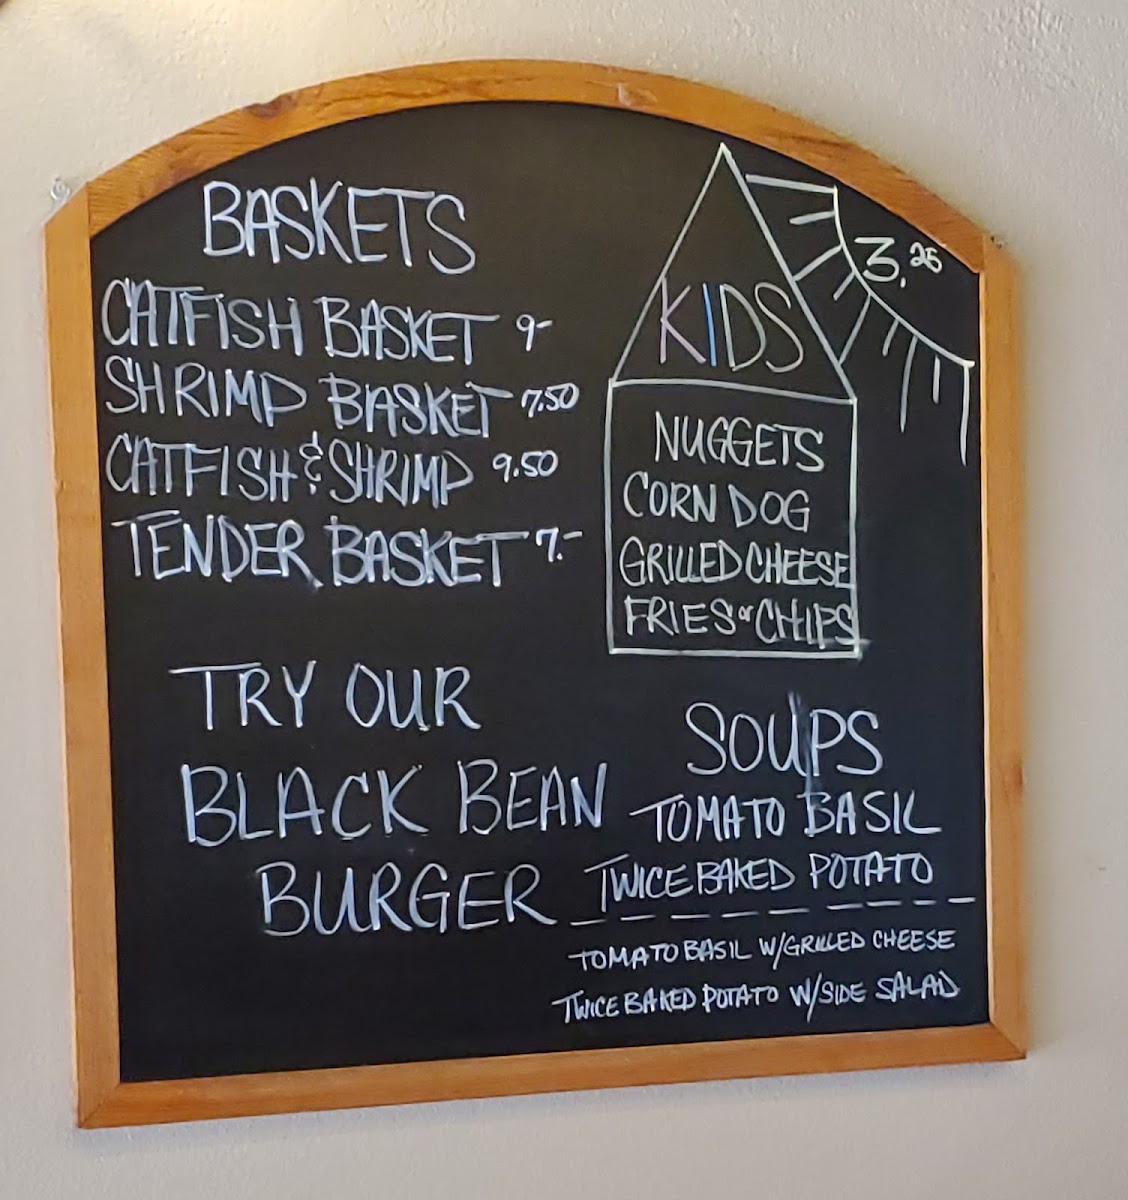 BASKETS
CATFISH BASKET 9-
SHRIMP BASKET 7.50
CATFISH & SHRIMP 9.50
TENDER BASKET 7.-
3.25
KIDS
NUGGETS
CORN DOG
GRILLED CHEESE
FRIES or CHIPS
TRY OUR
BLACK BEAN
BURGER
SOUPS
TOMATO BASIL
TWICE BAKED POTATO
TOMATO BASIL W/GRILLED CHEESE
TWICE BAKED POTATO W/SIDE SALAD